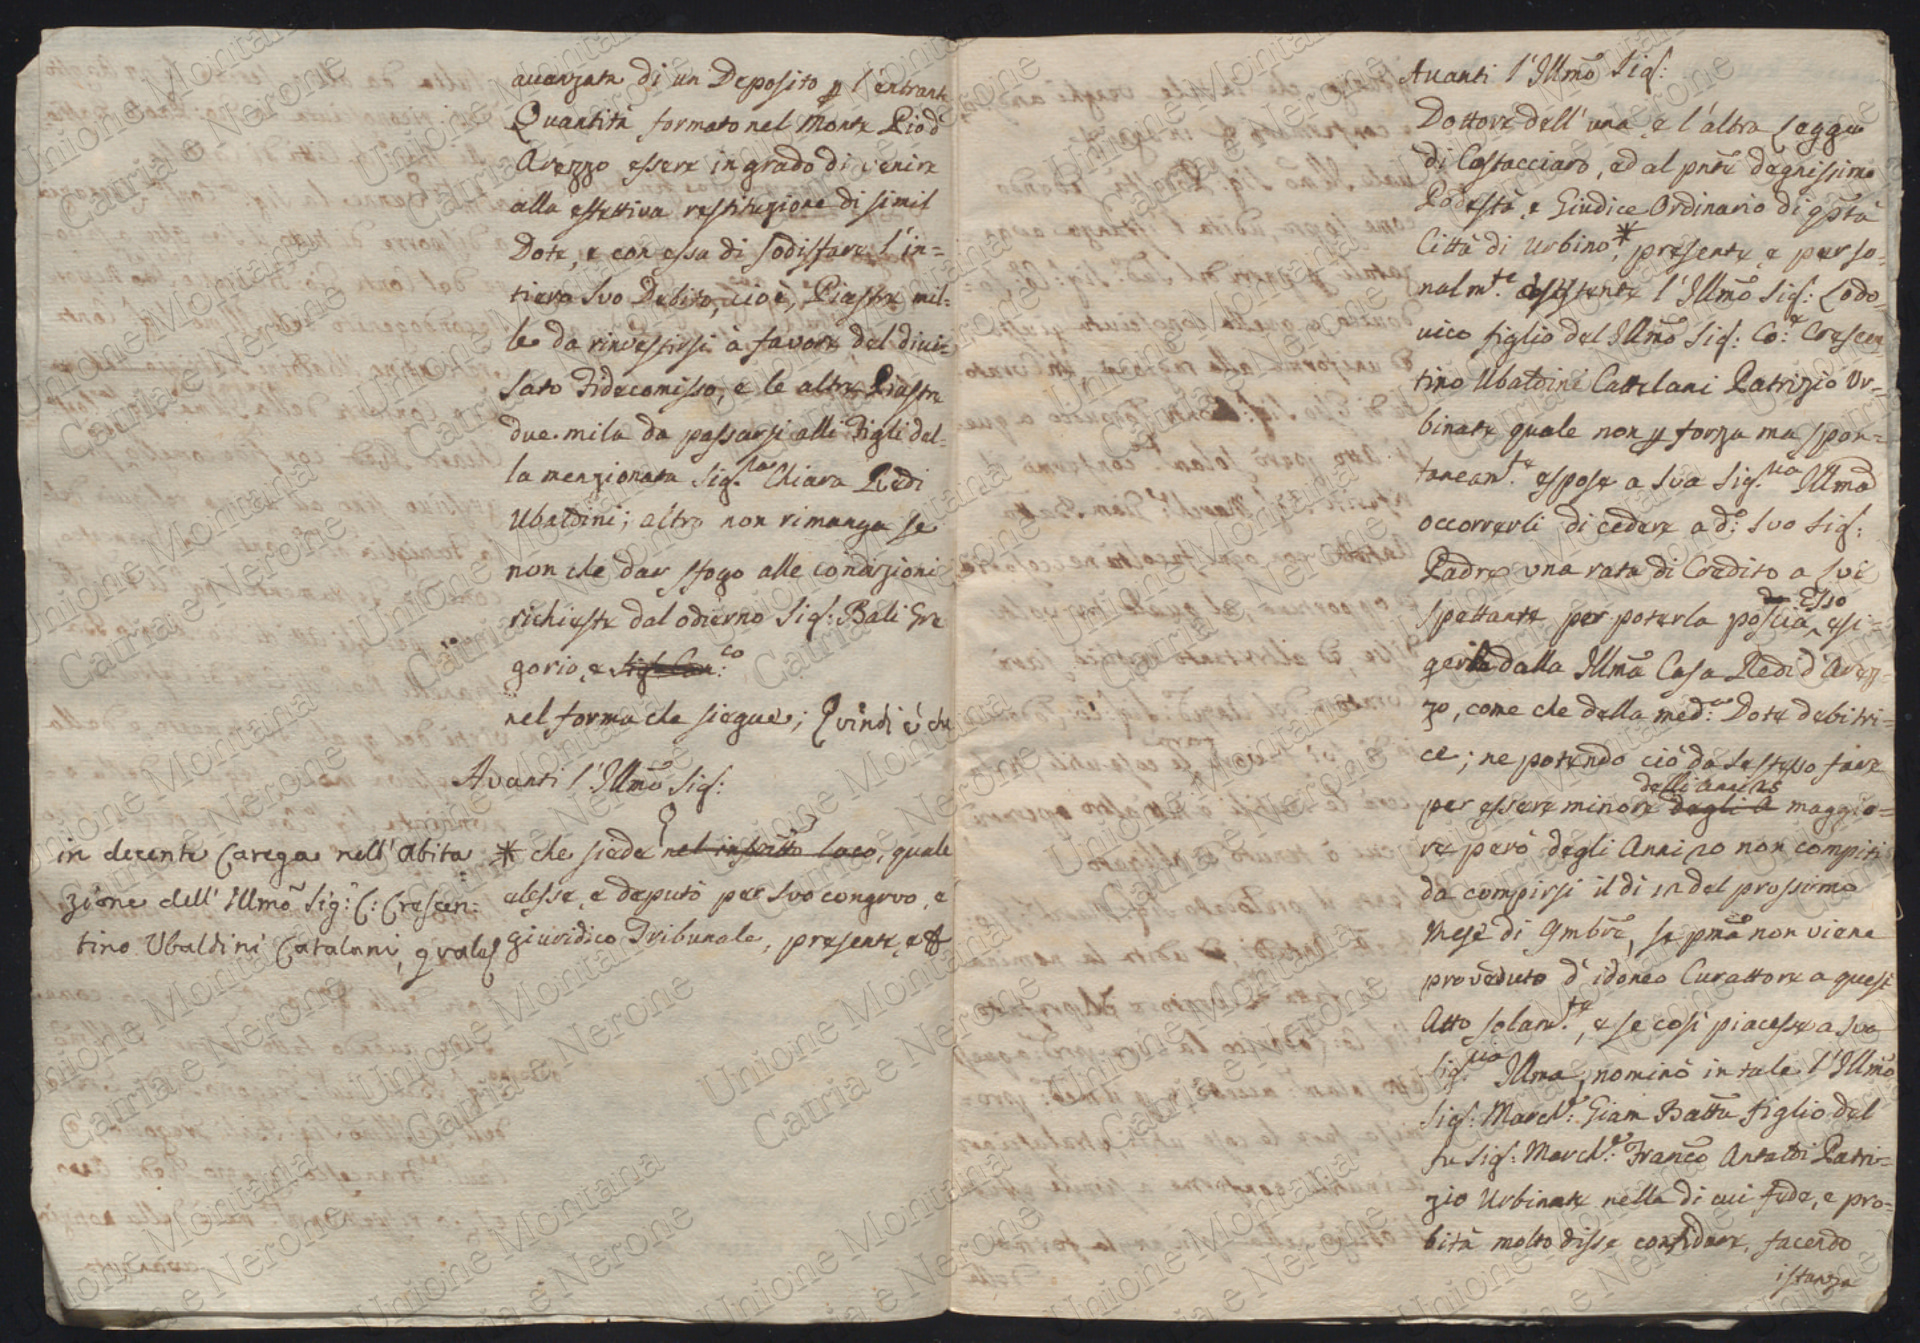 avanzata di un Deposito p l'entrante
Quantità formato nel Monte Pio d'
Arezzo essere in grado di venire
alla effettiva restituzione di simil
Dote, e con essa di sodisfare l'in=
tiero suo Debito, cioè, Piastre mil=
le da rinvestirsi à favore del divi=
sato Fidecomisso, e le altre Piastre
due mila da passarsi alli Figli del=
la menzionata Sig.ra Chiara Redi
Ubaldini; altro non rimanga se
non che dar sfogo alle condizioni
richieste dal odierno Sig: Bali Gre
gorio, e
nel forma che siegue; Quindi è che
Avanti l'Illmo Sig:
* che siede nel infritto loco, quale
elesse, e deputò per suo congruo, e
giuridico Tribunale, presente, e
in decente Carega nell'Abita
zione dell'Illmo Sig: C: Crescen:
tino Ubaldini Catalani, quale
Avanti l'Illmo Sig:
Dottore dell'una, e l'altra Legge
di Costacciaro, ed al pnte degnissimo
Podestà, e Giudice Ordinario di qsta
Città di Urbino*, presente, e perso=
nalmte esistente l'Illmo Sig: Lodo=
vico figlio del Illmo Sig: Co:e Crescen
tino Ubaldini Cattelani Patrizio Ur=
binate quale non p forza ma spon=
taneamte espose a Sua Sig.ria Illma
occorrerli di cedere a d.o suo Sig:
Padre una rata di Credito a Sui
spettante, per poterla poscia esso esi=
gerla dalla Illma Casa Redi d'Arez=
zo, come che della med.a Dote debitri=
ce; ne potendo ciò da se stesso fare
per essere minore degli A delli anni 25 maggio=
re però degli Anni 20 non compiti
da compirsi il di 12 del prossimo
Mese di 9mbre, se pma non viene
proveduto d'idoneo Curattore a quest'
Atto solamte, e se così piacesse a Sua
Sig.ria Illma, nominò in tale l'Illmo
Sig: March.e Giam Batta figlio del
fu Sig: March.e Franco Antaldi Patri=
zio Urbinate nella di cui fede, e pro=
bità molto disse confidare, facendo
istanza